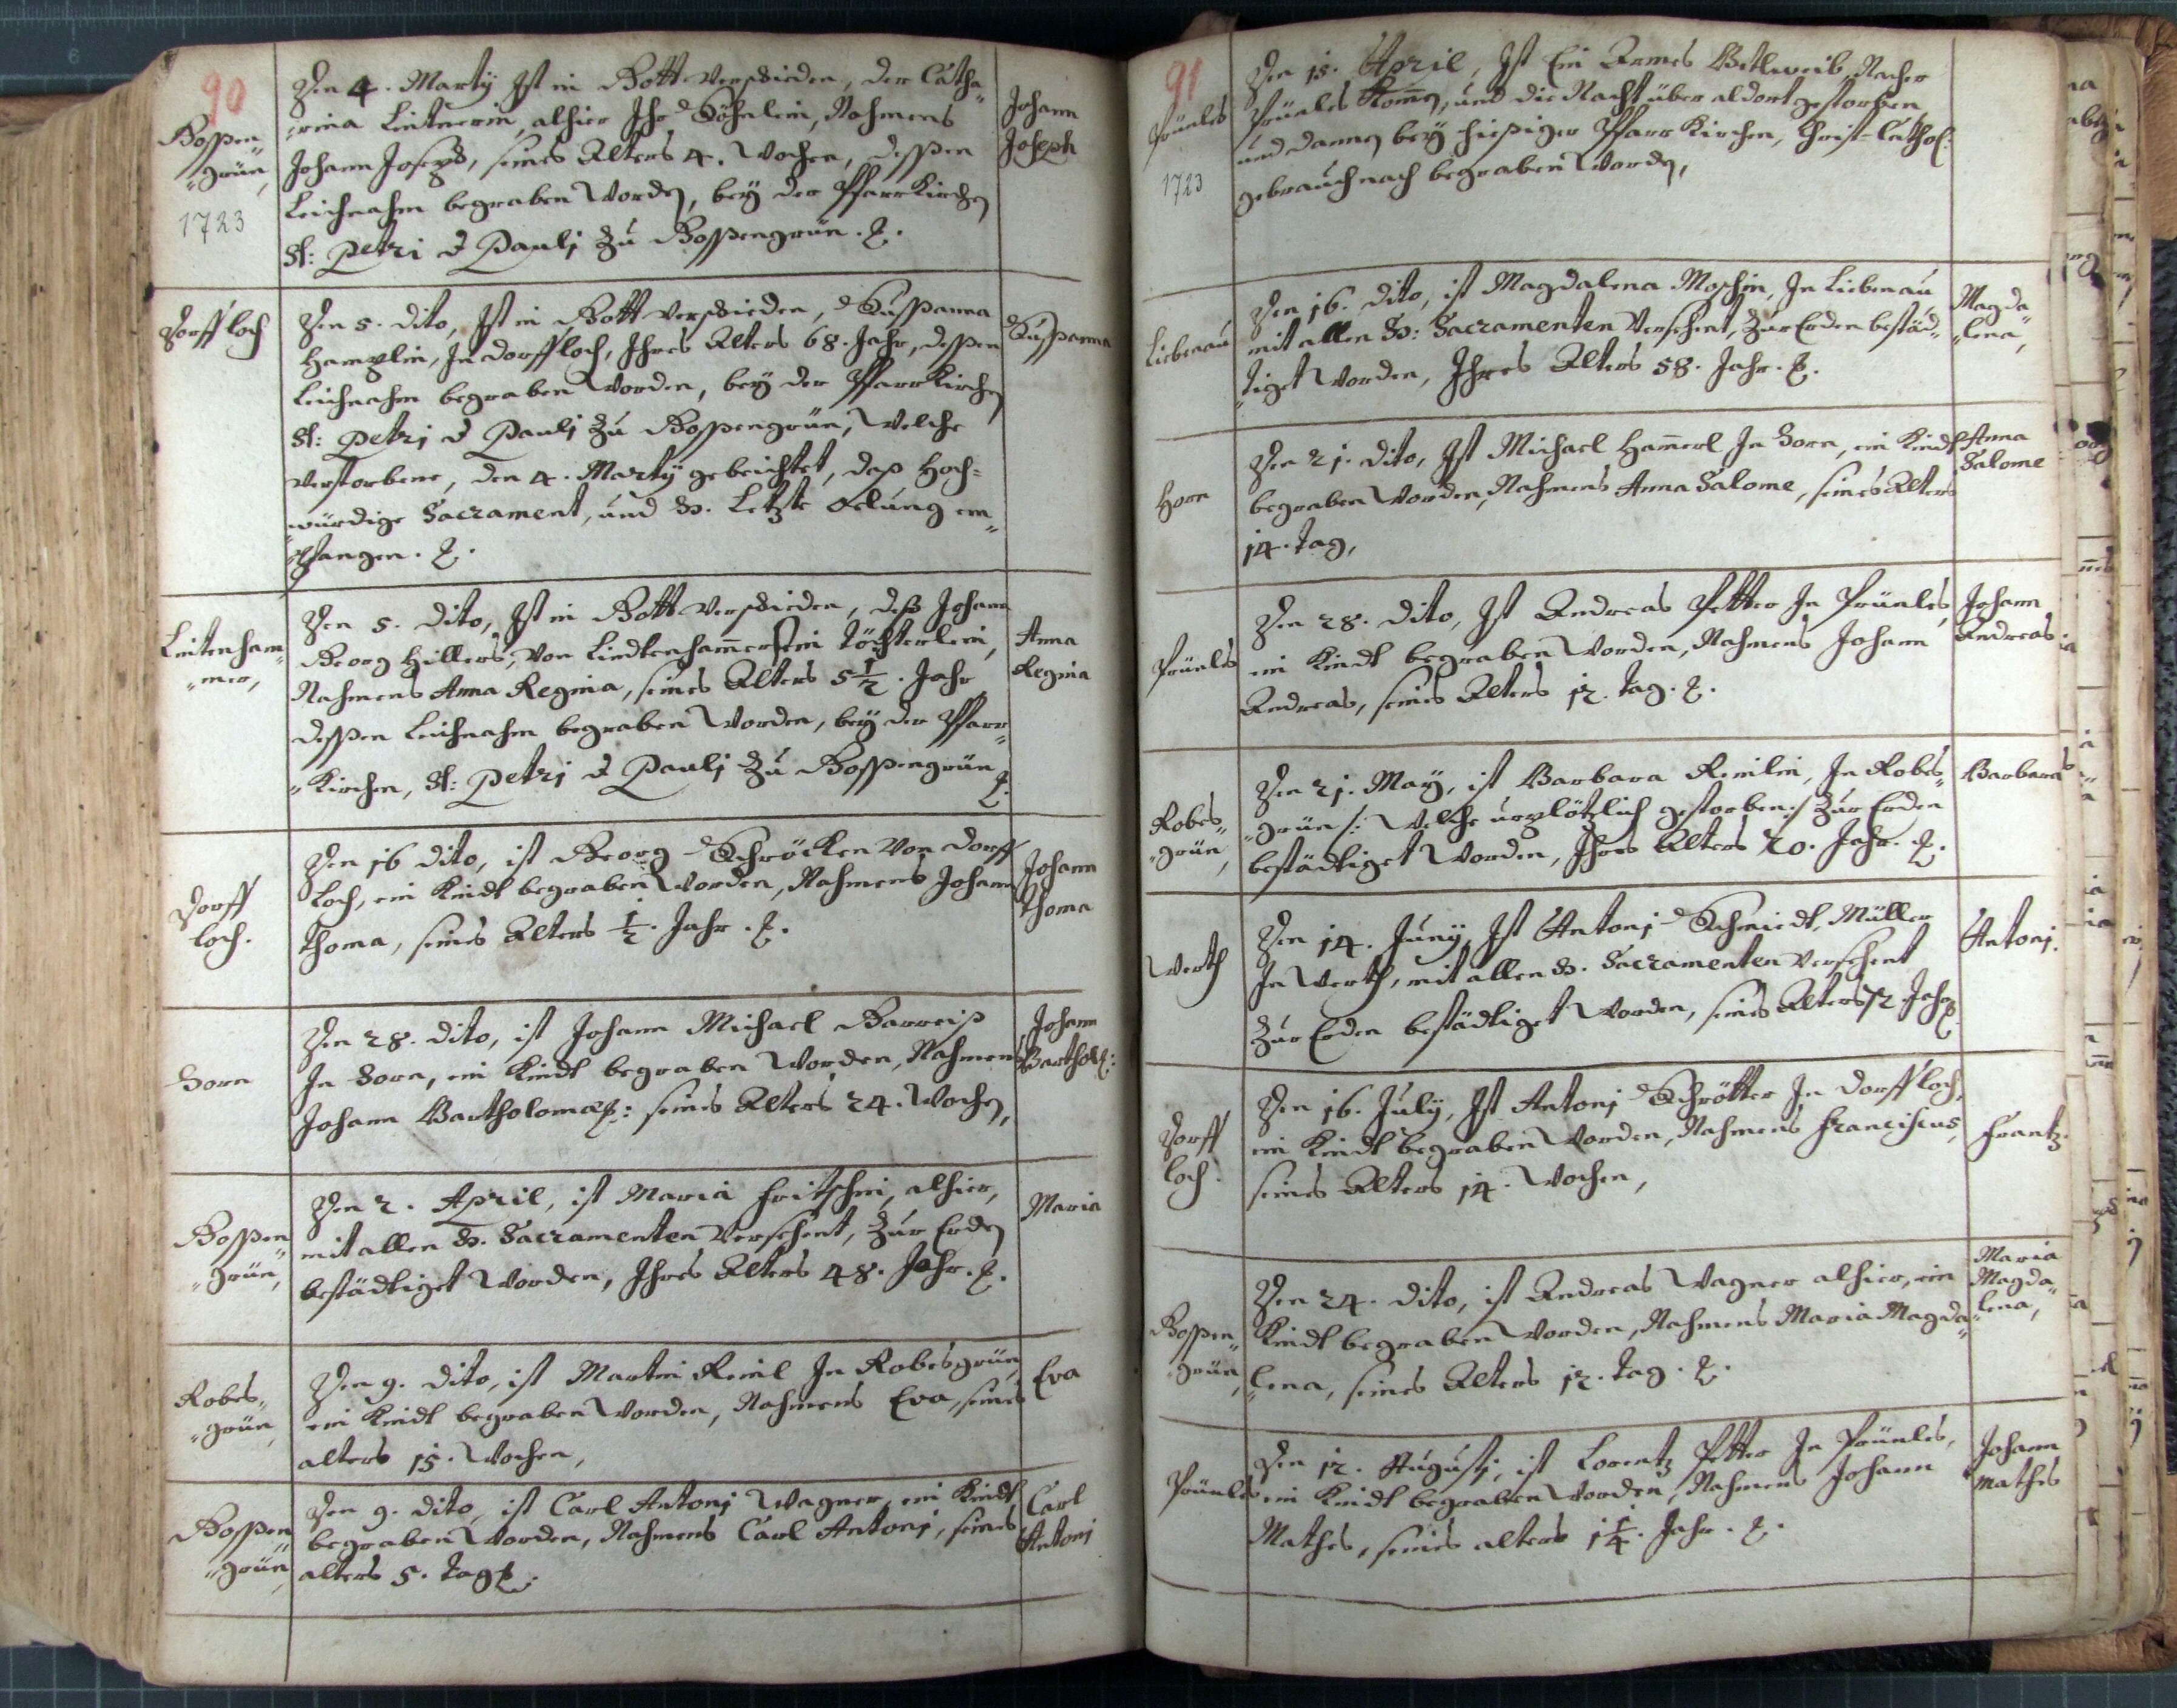 90
Boßen„
„grün,
1723
Den 4. Marty Ist in Gott verschieden, der Catha„
„rina Lintnerin, alhier Ihr Söhnlein, Nahmens
Johann Joseph, seines Alters 4. Wochen, deßen
Leichnahm begraben worden, bey der Pfarr Kirchen
St: Petri et Pauli Zu Boßengrün.
Johann
Joseph
Dorffloch
Den 5. dito, Ist in Gott verschieden, Sußanna
in Dorffloch, Ihres Alters 68. Jahr, deßen
Leichnahm begraben worden, bey der Pfarr Kirchen
St: Petrj et Paulj Zu Boßengrün, welche
verstorbene, den 4. Marty gebeichtet, daß Hoch=
würdige Sacrament, und H. Letzte Oelung em„
„pfangen.
Sußanna
Leitenham„
„mer,
Den 5. dito, Ist in Gott verschieden, deß Johann
Georg Hillers, von Liedtenhammer sein Töchterlein,
Nahmens Anna Regina, seines Alters 5½. Jahr
deßen Leichnahm begraben worden, bey der Pfarr„
„Kirchen, St: Petrj et Paulj Zu Boßengrün
Anna
Regina
Dorff
loch.
Den 16 dito, ist Georg Schröcken von Dorff
loch, ein Kindt begraben worden, Nahmens Johann
Thoma, seines Alters ½. Jahr.
Johann
Thoma
Horn
Den 28. dito, ist Johann Michael Barreiß
In Horn, ein Kindt begraben worden, Nahmens
Johann Bartholomæ: seines Alters 24. Wochen,
Johann
Barthol:
Boßen„
„grün,
Den 2. April, ist Maria Fritschin, alhier,
mit allen H. Sacramenten versehent, Zur Erden
bestädtiget worden, Ihres Alters 48. Jahr.
Maria
Robes„
„grün,
Den 9. dito, ist Martin Reinl In Robesgrün,
ein Kindt begraben worden, Nahmens Eva, seines
alters 15. Wochen,
Eva
Boßen„
„grün,
Den 9. dito, ist Carl Antonj Wagner, ein Kindt
begraben worden, Nahmens Carl Antonj, seines
alters 5. Tag
Carl
Antonj
91
Prünles
1723
Den 15. April, Ist Ein Armes Bettlweib, Nacher
Prünles Komen, und die Nacht über aldort gestorben
und dannen bey hießiger Pfarr Kirchen, Christ=Cathol:
gebrauch nach begraben worden,
Liebenau
Den 16. dito, ist Magdalena Moschin, In Liebenau
mit allen H: Sacramenten versehent, Zur Erden bestäd„
„tiget worden, Ihres Alters 58. Jahr.
Magda„
„lena,
Horn
Den 21. dito, Ist Michael Hamerl In Horn, ein Kindt
begraben worden, Nahmens Anna Salome, seines Alters
14. Tag,
Anna
Salome
Prünles
Den 28. dito, Ist Andreas Petter In Prünles,
ein Kindt begraben worden, Nahmens Johann
Andreas, seines Alters 12. Tag.
Johann
Andreas
Robes„
„grün,
Den 21. May, ist Barbara Reinlin, In Robes„
„grün /: welche urplötzlich gestorben :/ Zur Erden
bestädtiget worden, Ihres Alters 70. Jahr.
Barbara
Werth
Den 14. Juny, Ist Antonj Schmiedt, Müller
In Werth, mit allen H. Sacramenten versehent
Zur Erden bestädtiget worden, seines Alters 72 Jahr
Antonj.
Dorff
loch.
Den 16. July, Ist Antonj Schrötter In Dorffloch,
ein Kindt begraben worden, Nahmens Franciscus,
seines Alters 14. Wochen,
Frantz.
Boßen„
grün,
Den 24. dito, ist Andreas Wagner alhier, ein
Kindt begraben worden, Nahmens Maria Magda„
„lena, seines Alters 12. Tag.
Maria
Magda„
„lena,
Prünles
Den 12. Augustj, ist Lorentz Petter In Prünles,
ein Kindt begraben worden, Nahmens Johann
Mathes, seines alters 1¼. Jahr.
Johann
Mathes